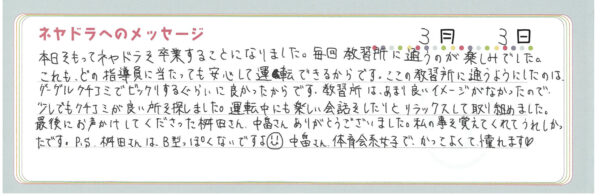 ネヤドラへのメッセージ
3月 3日
本日をもってネヤドラを卒業することになりました。毎回教習所に通うのが楽しみでした。
これも、どの指導員に当たっても安心して運転できるからです。ここの教習所に通うようにしたのは、
グーグルクチコミでビックリするぐらいに良かったからです。教習所は、あまり良いイメージがなかったので、
少しでもクチコミが良い所を探しました。運転中にも楽しい会話をしたりとリラックスして取り組めました。
最後にお声かけしてくださった桝田さん、中畠さんありがとうございました。私の事を覚えてくれてうれしかっ
たです。P.S. 桝田さんは、B型っぽくないですよ☺ 中畠さん、体育会系女子で、かっこよくて憧れます♡